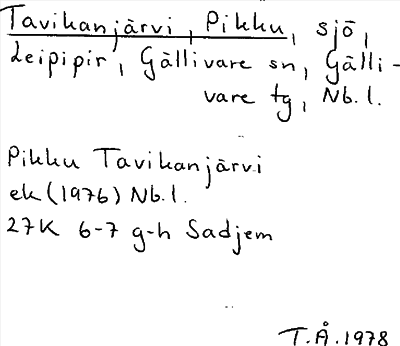 Tavikanjärvi, Pikku, sjö,
Leipipir, Gällivare sn, Gälli-
vare tg, Nb.l.
Pikku Tavikanjärvi
ek (1976) Nb.l.
27K 6-7 g-h Sadjem
T.Å.1978